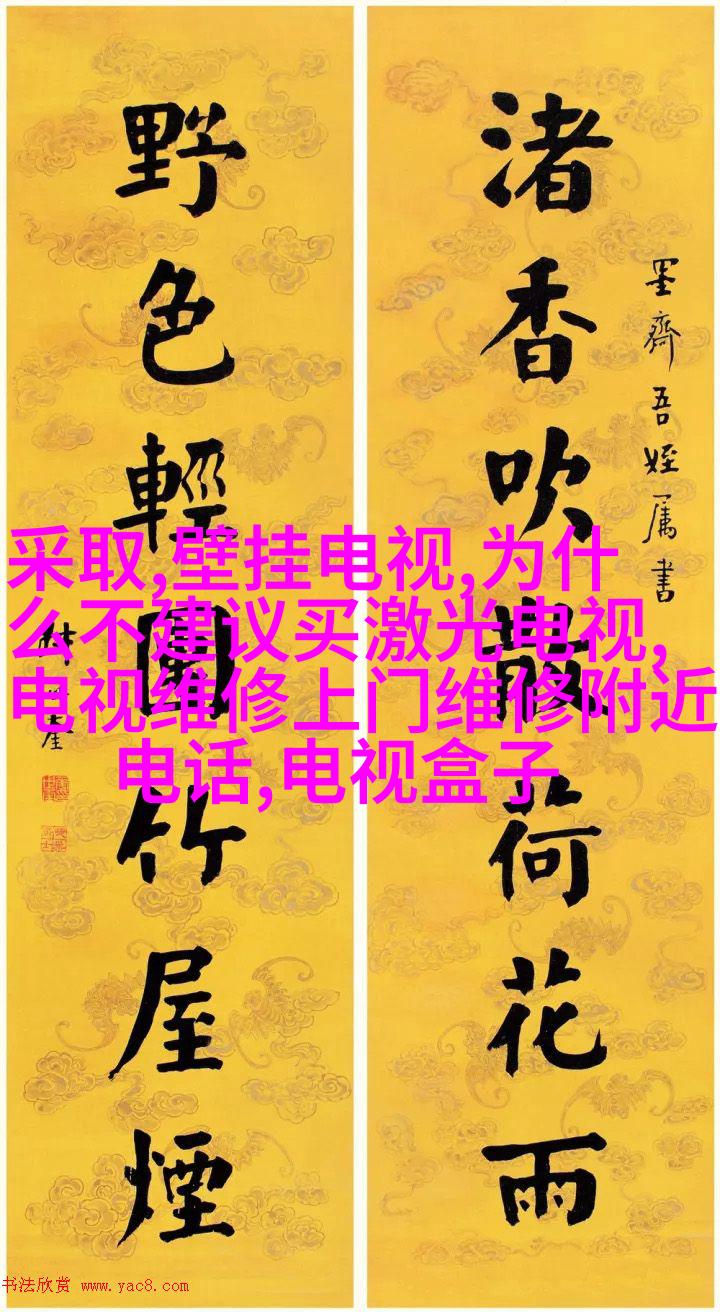 渚香吹散荷花雨
墨齊吾姪属書
野色輕圍竹屋煙
采取,壁挂电视,为什
么不建议买激光电视,
电视维修上门维修附近
电话,电视盒子
书法欣赏 www.yac8.com